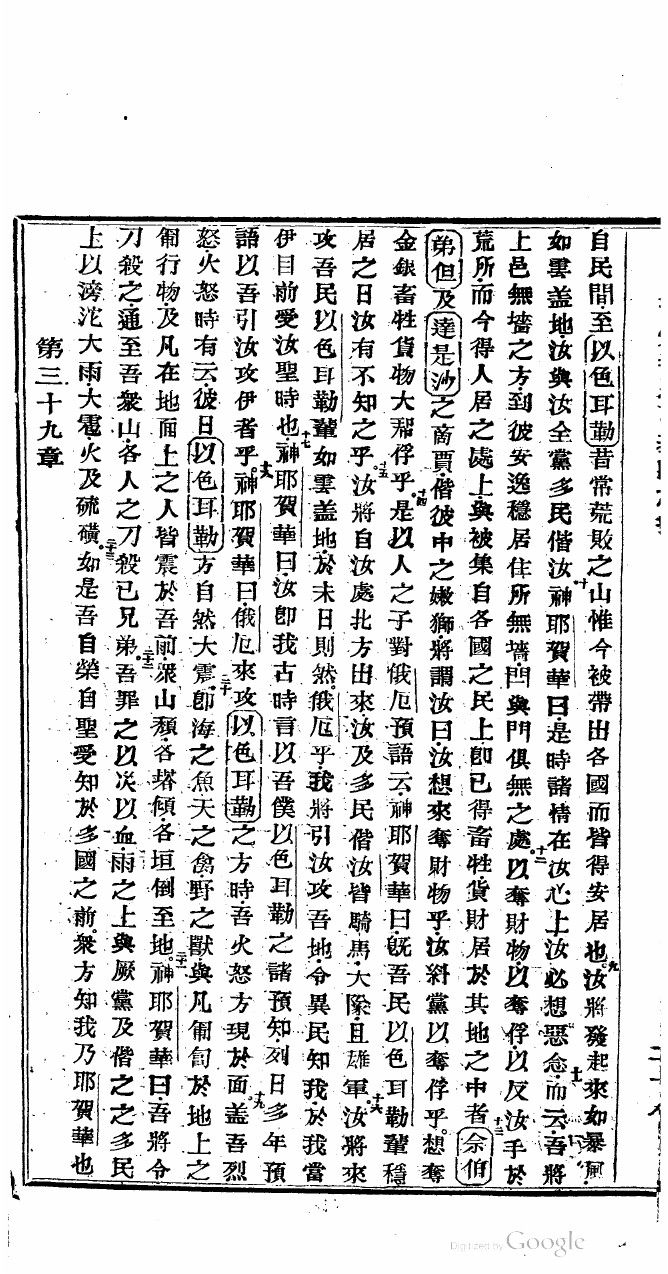 自民間至以色耳勒昔常荒敗之山惟今被帶出各國而皆得安居也九汝將發起來如暴風
如雲盖地汝與汝全黨多民偕汝十神耶賀華曰是時諸情在汝心上汝必想惡念而云十一吾將
上邑無墻之方到彼安逸穩居住所無墻門與門俱無之處十二以奪財物以奪俘以反汝手於
荒所而今得人居之處上與被集自各國之民上卽已得畜牲貨財居於其地之中者十三佘伯
弟但及達是沙之商賈偕彼中之嫩獅將謂汝曰汝想來奪財物乎汝糾黨以奪俘乎想奪
金銀畜牲貨物大帮俘乎十四是以人之子對俄厄預語云神耶賀華曰旣吾民以色耳勒輩穩
居之日汝有不知之乎十五汝將自汝處北方出來汝及多民偕汝皆騎馬大隊且雄軍十六汝將來
攻吾民以色耳勒輩如雲盖地於末日則然俄厄乎我將引汝攻吾地令異民知我於我當
伊目前受汝聖時也十七神耶賀華曰汝卽我古時言以吾僕以色耳勒之諸預知列日多年預
語以吾引汝攻伊者乎十八神耶賀華曰俄厄來攻以色耳勒之方時吾火怒方現於面十九盖吾烈
怒火怒時有云彼日以色耳勒方自然大震二十卽海之魚天之禽野之獸與凡匍匐於地上之
匍行物及凡在地面上之人皆震於吾前衆山頹各塔傾各垣倒至地二十一神耶賀華曰吾將令
刀殺之通至吾衆山各人之刀殺已兄弟二十二吾罪之以災以血雨之上與厥黨及偕之之多民
上以滂沱大雨大雹火及硫磺二十三如是吾自榮自聖受知於多國之前衆方知我乃耶賀華也
第三十九章
Digitized by Google